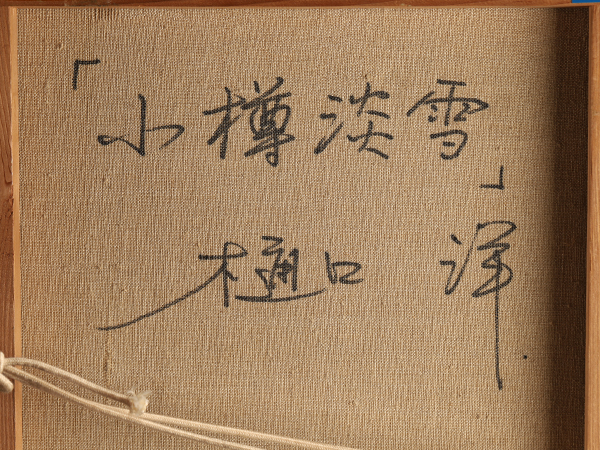 「小樽淡雪」
樋口 洋